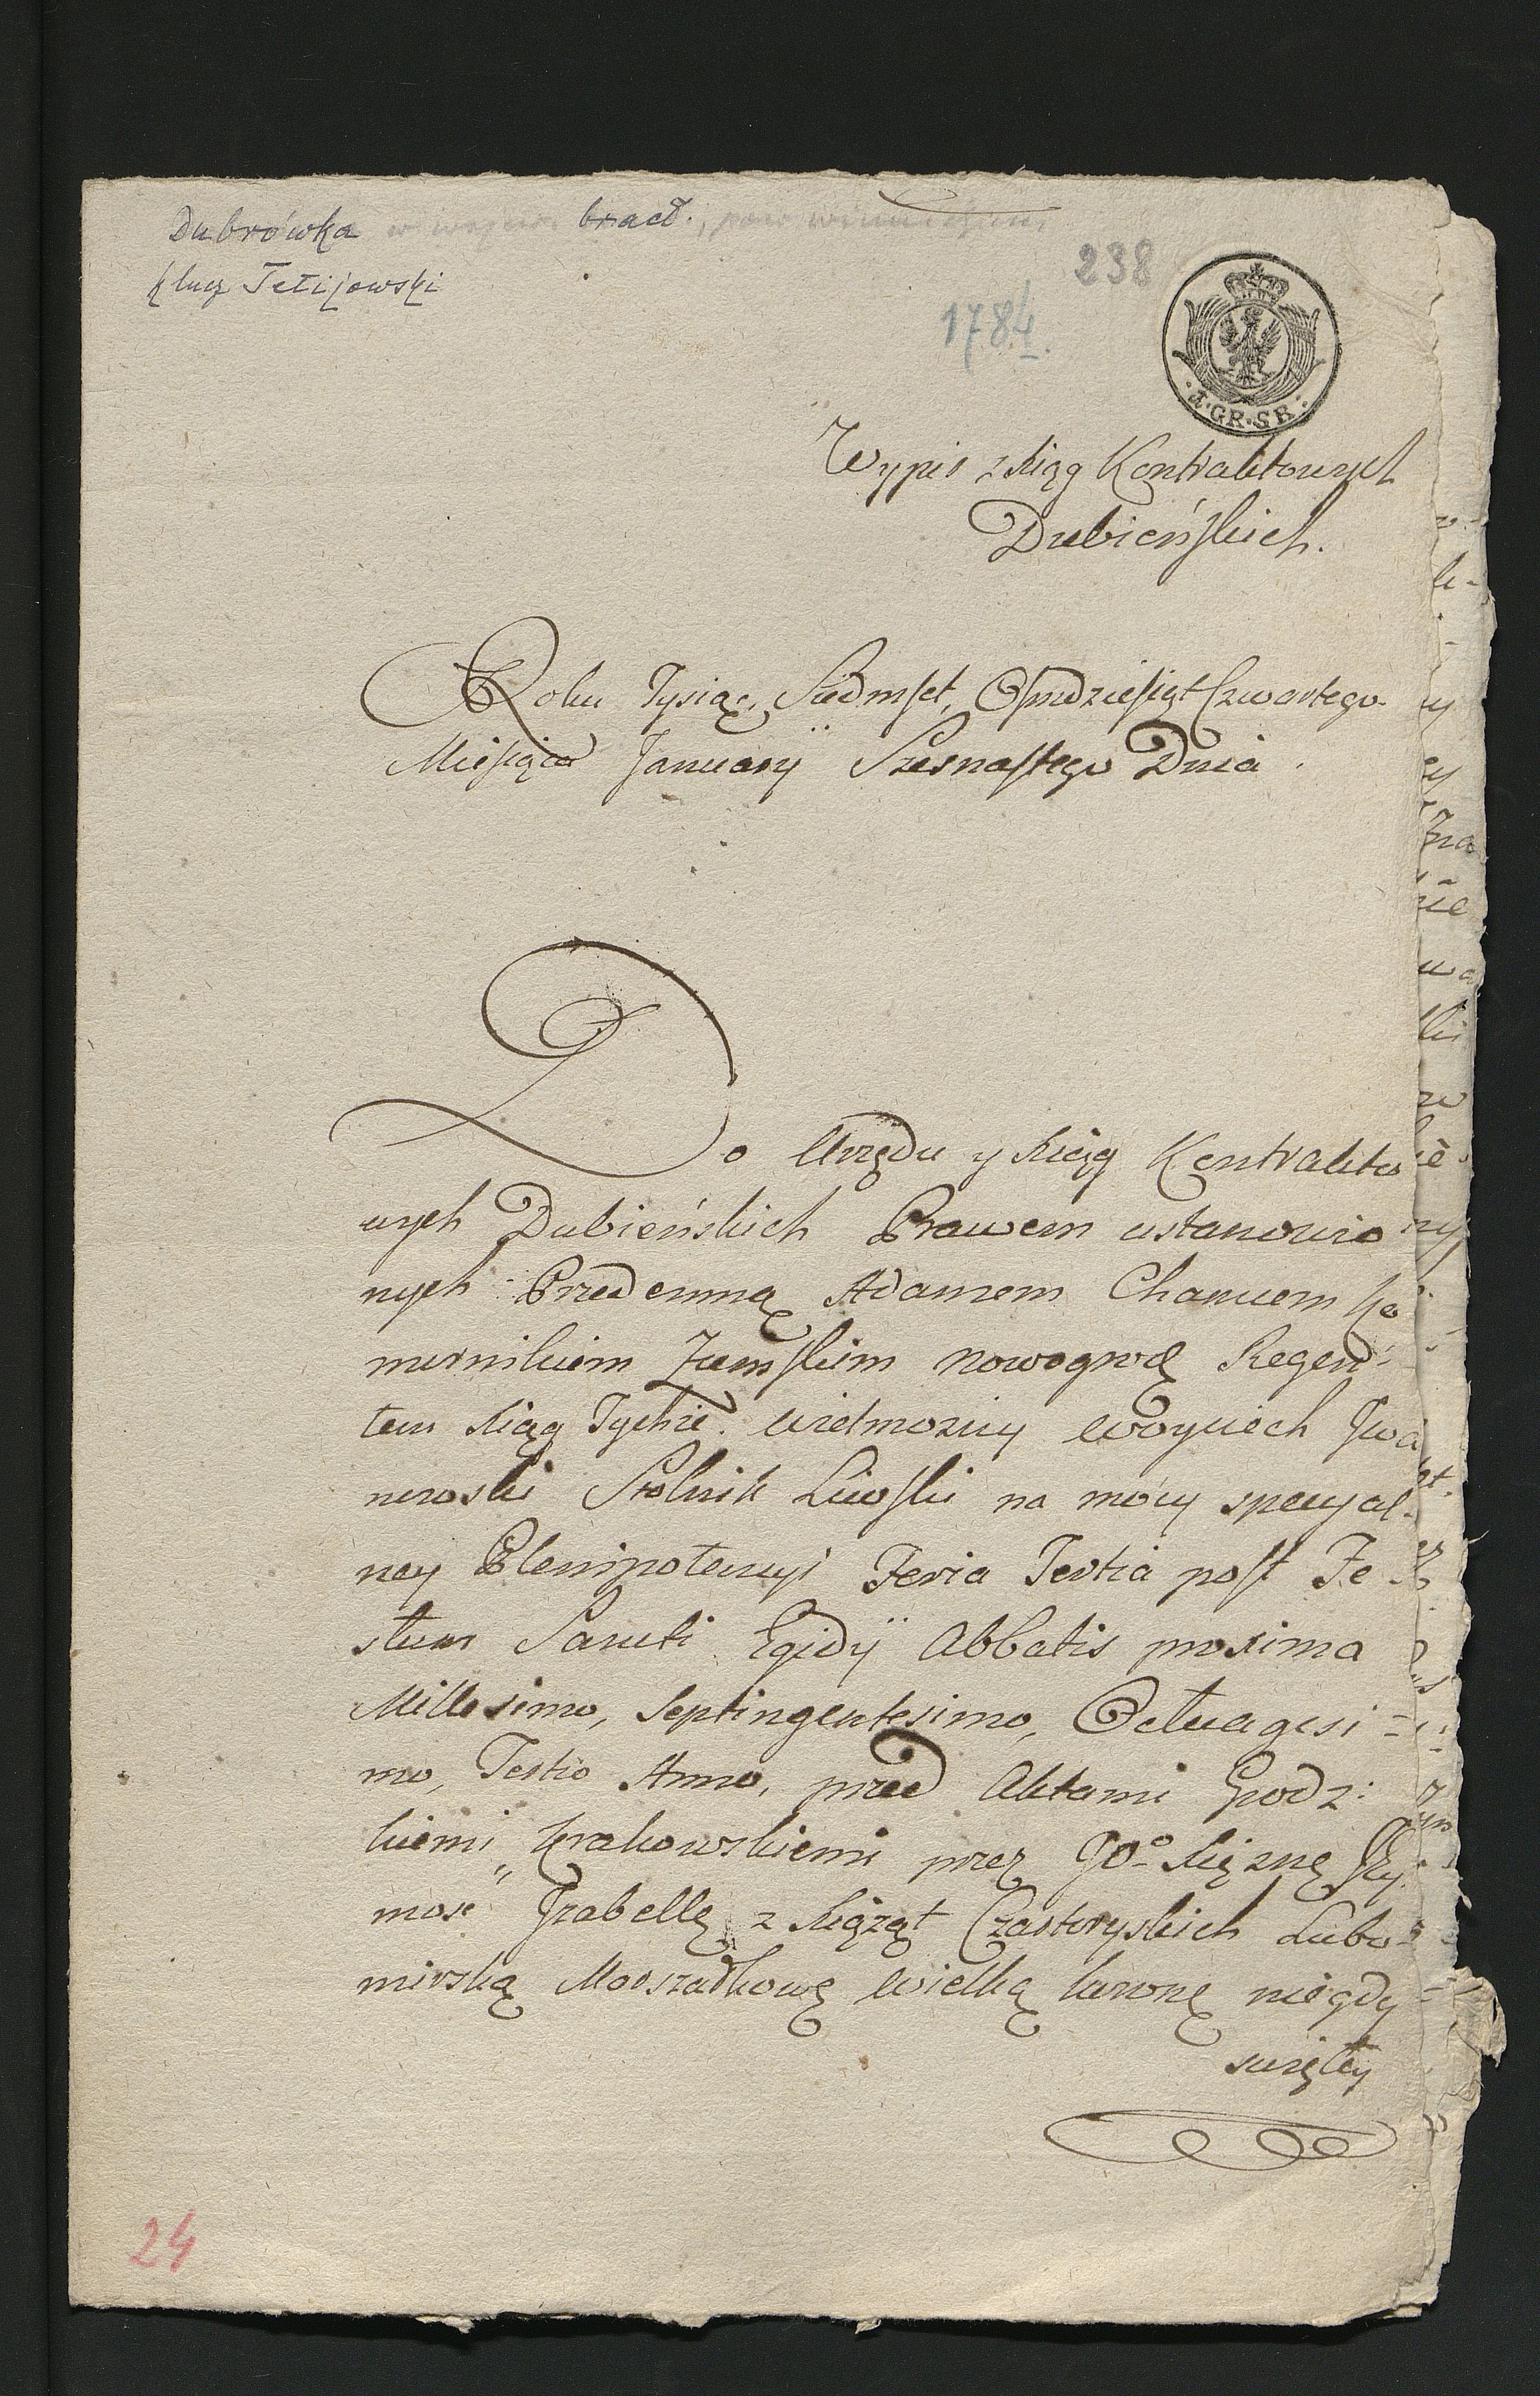 Dubrówka w wojew. bracł., pow. winnickim
klucz Tetijowski
238
1784.
4.GR.SR.
Wypis z Xiąg Kontraktowych
Dubieńskich.
Roku Tysiąc, Siedmset, Osmdziesiąt Czwartego
Miesiąca January Szesnastego Dnia.
Do Urzędu y Xiąg Kontrakto
wych Dubieńskich Prawem ustanowio
nych Przedemną Adamem Chamcem Ko
mornikiem Ziemskim nowogrod Regen-
tem Xiąg Tychże. wielmożny woyciech Jwa
nowski Stolnik Liwski na mocy specyal-
ney Plenipotencyi Feria Tertia post Fe-
stum Sancti Egidÿ Abbatis proxima
Millesimo, Septingentesimo, Octuagesi=
mo, Tertio Anno, przed Aktami Grodz:
kiemi krakowskiemi przez JO. Xiężnę Jey:
mosc Jzabellę z Xiążąt Czartoryskich Lubo-
mirską Marszałkową wielką koronną niegdy
swiętey
24